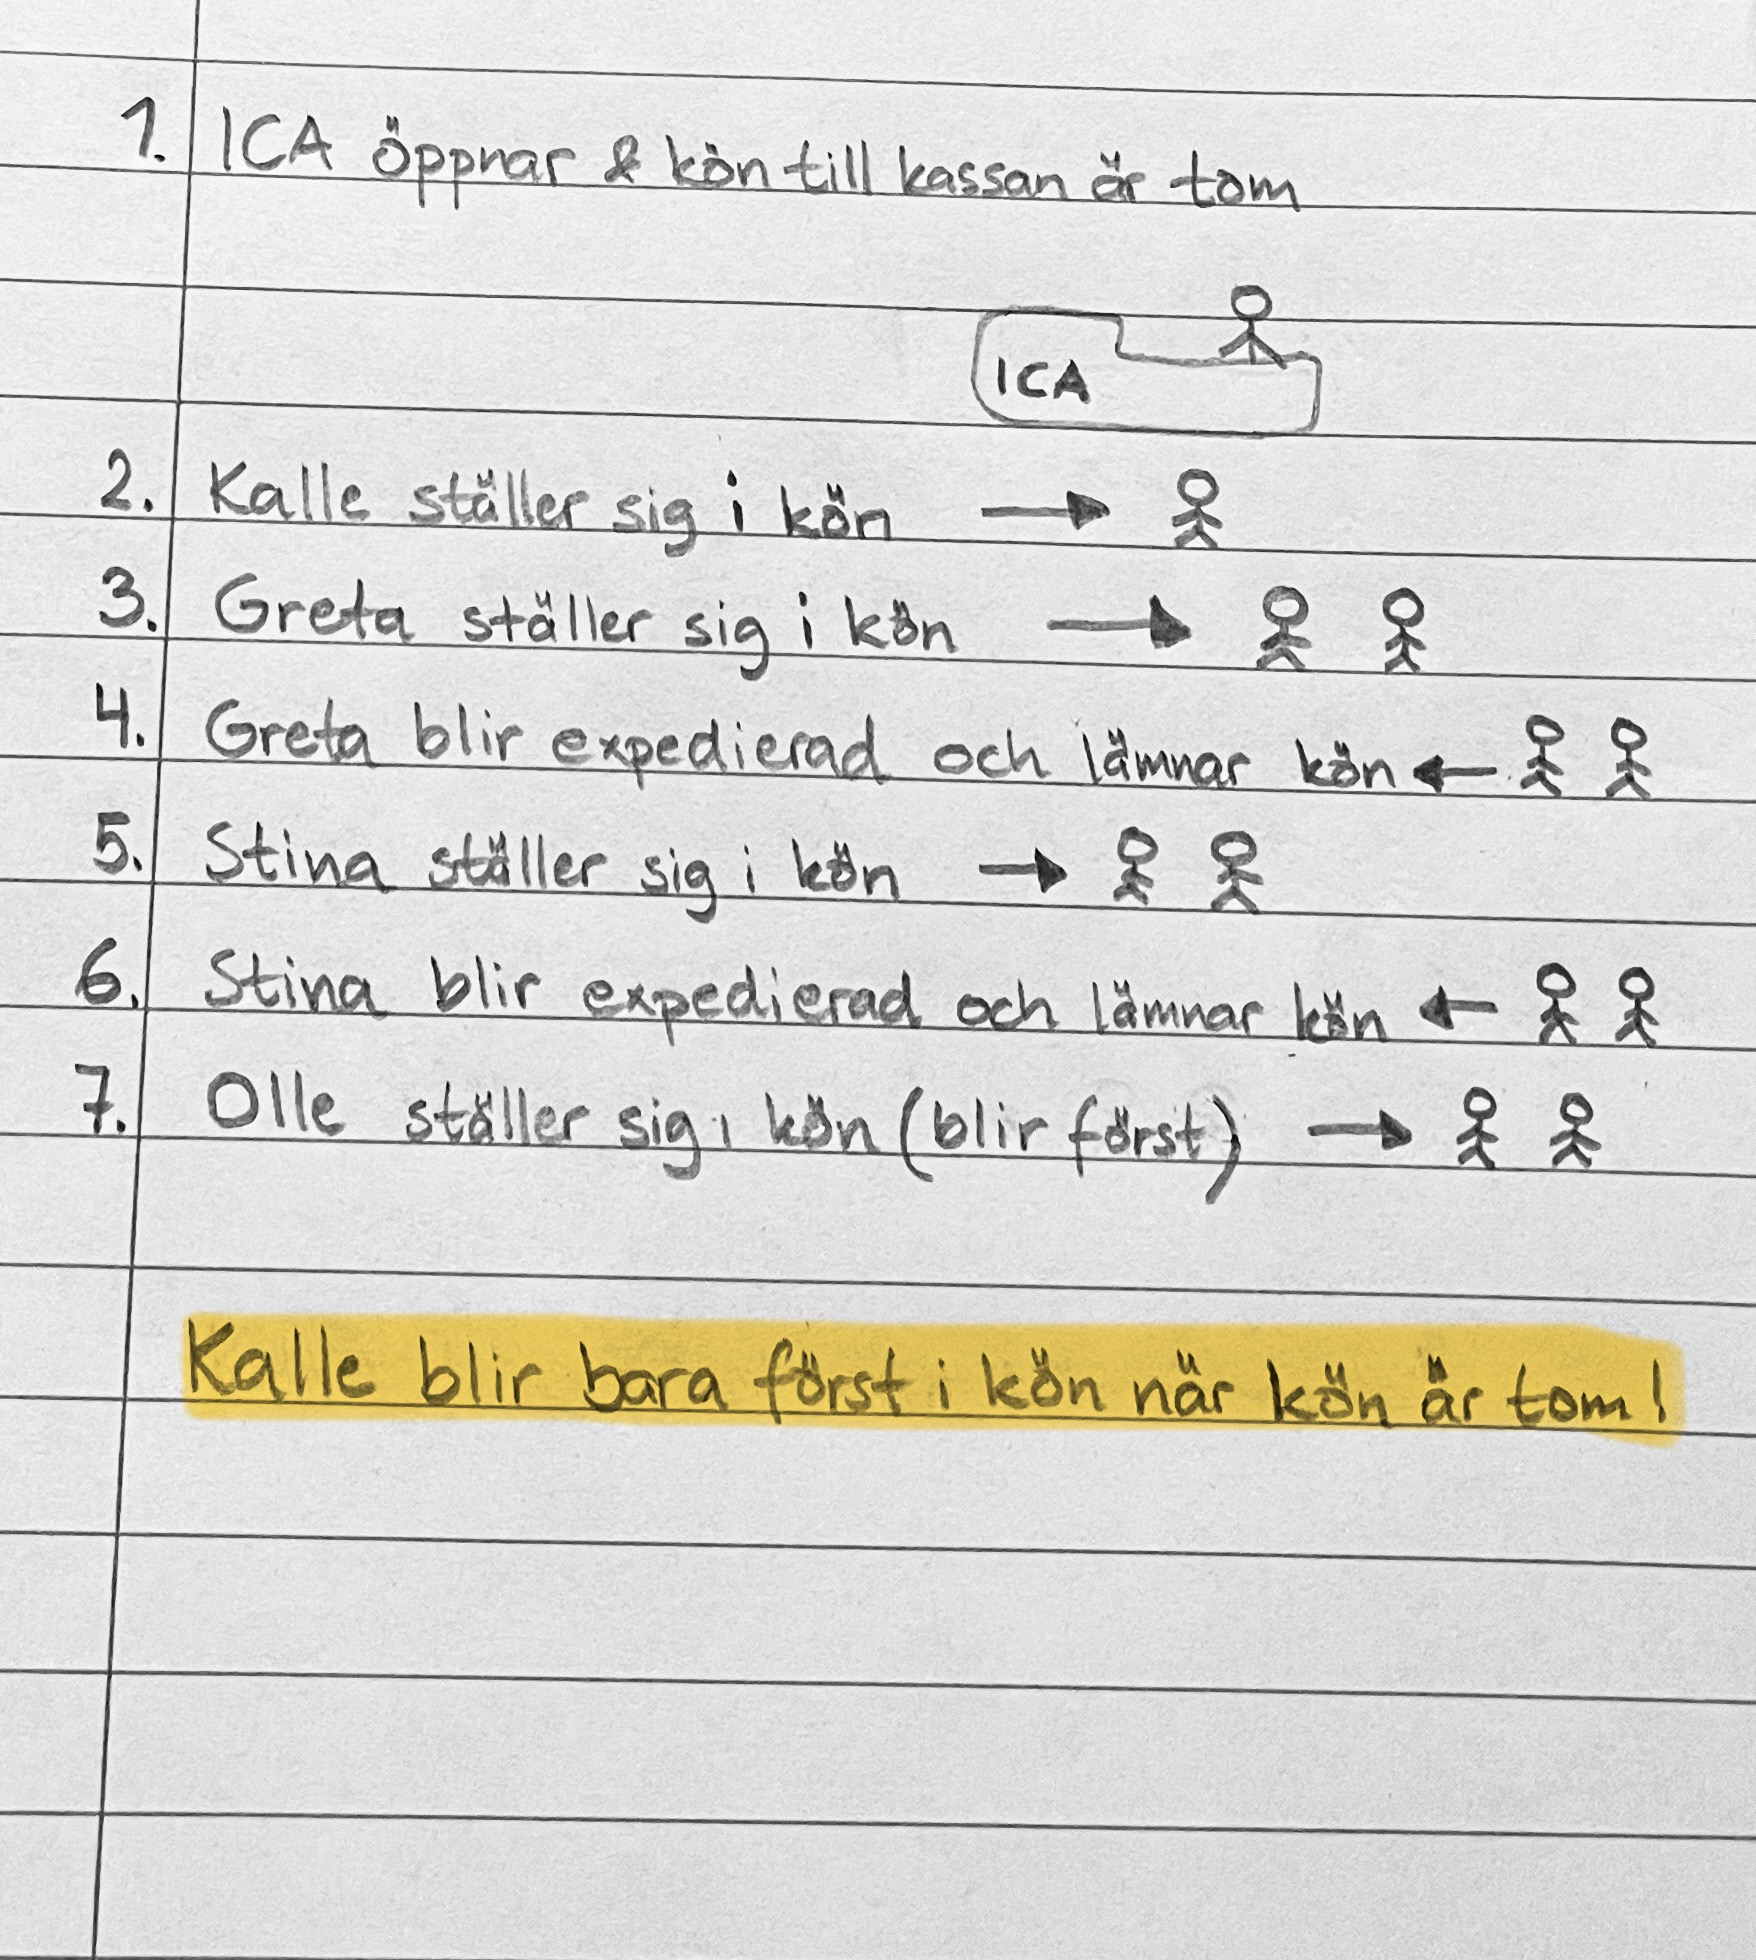 1. ICA öppnar & kön till kassan är tom
ICA
2. Kalle ställer sig i kön
3. Greta ställer sig i kön
4. Greta blir expedierad och lämnar kön
5. Stina ställer sig i kön
6. Stina blir expedierad och lämnar kön
7. Olle ställer sig i kön (blir först)
Kalle blir bara först i kön när kön är tom!